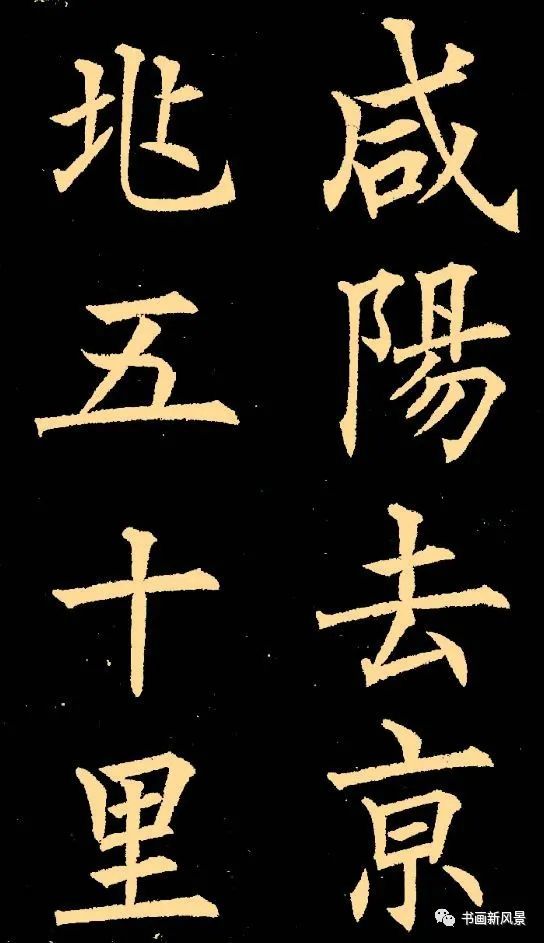 咸陽去亰
北五十里
书画新风景